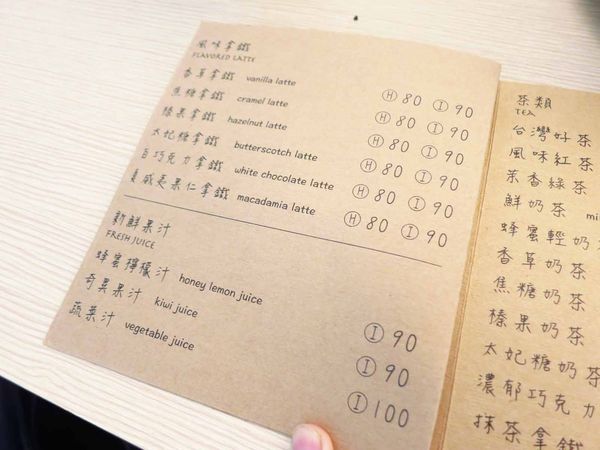 風味拿鐵
FLAVORED LATTE
香草拿鐵 vanilla latte Ⓗ 80 Ⓘ 90
焦糖拿鐵 cramel latte Ⓗ 80 Ⓘ 90
榛果拿鐵 hazelnut latte Ⓗ 80 Ⓘ 90
太妃糖拿鐵 butterscotch latte Ⓗ 80 Ⓘ 90
白巧克力拿鐵 white chocolate latte Ⓗ 80 Ⓘ 90
夏威夷果仁拿鐵 macadamia latte Ⓗ 80 Ⓘ 90
新鮮果汁
FRESH JUICE
蜂蜜檸檬汁 honey lemon juice Ⓘ 90
奇異果汁 kiwi juice Ⓘ 90
蔬菜汁 vegetable juice Ⓘ 100
茶類
TEA
台灣好茶
風味紅茶
茉香綠茶
鮮奶茶 mi
蜂蜜輕奶
香草奶茶
焦糖奶茶
榛果奶茶
太妃糖奶茶
濃郁巧克力
抹茶拿鐵